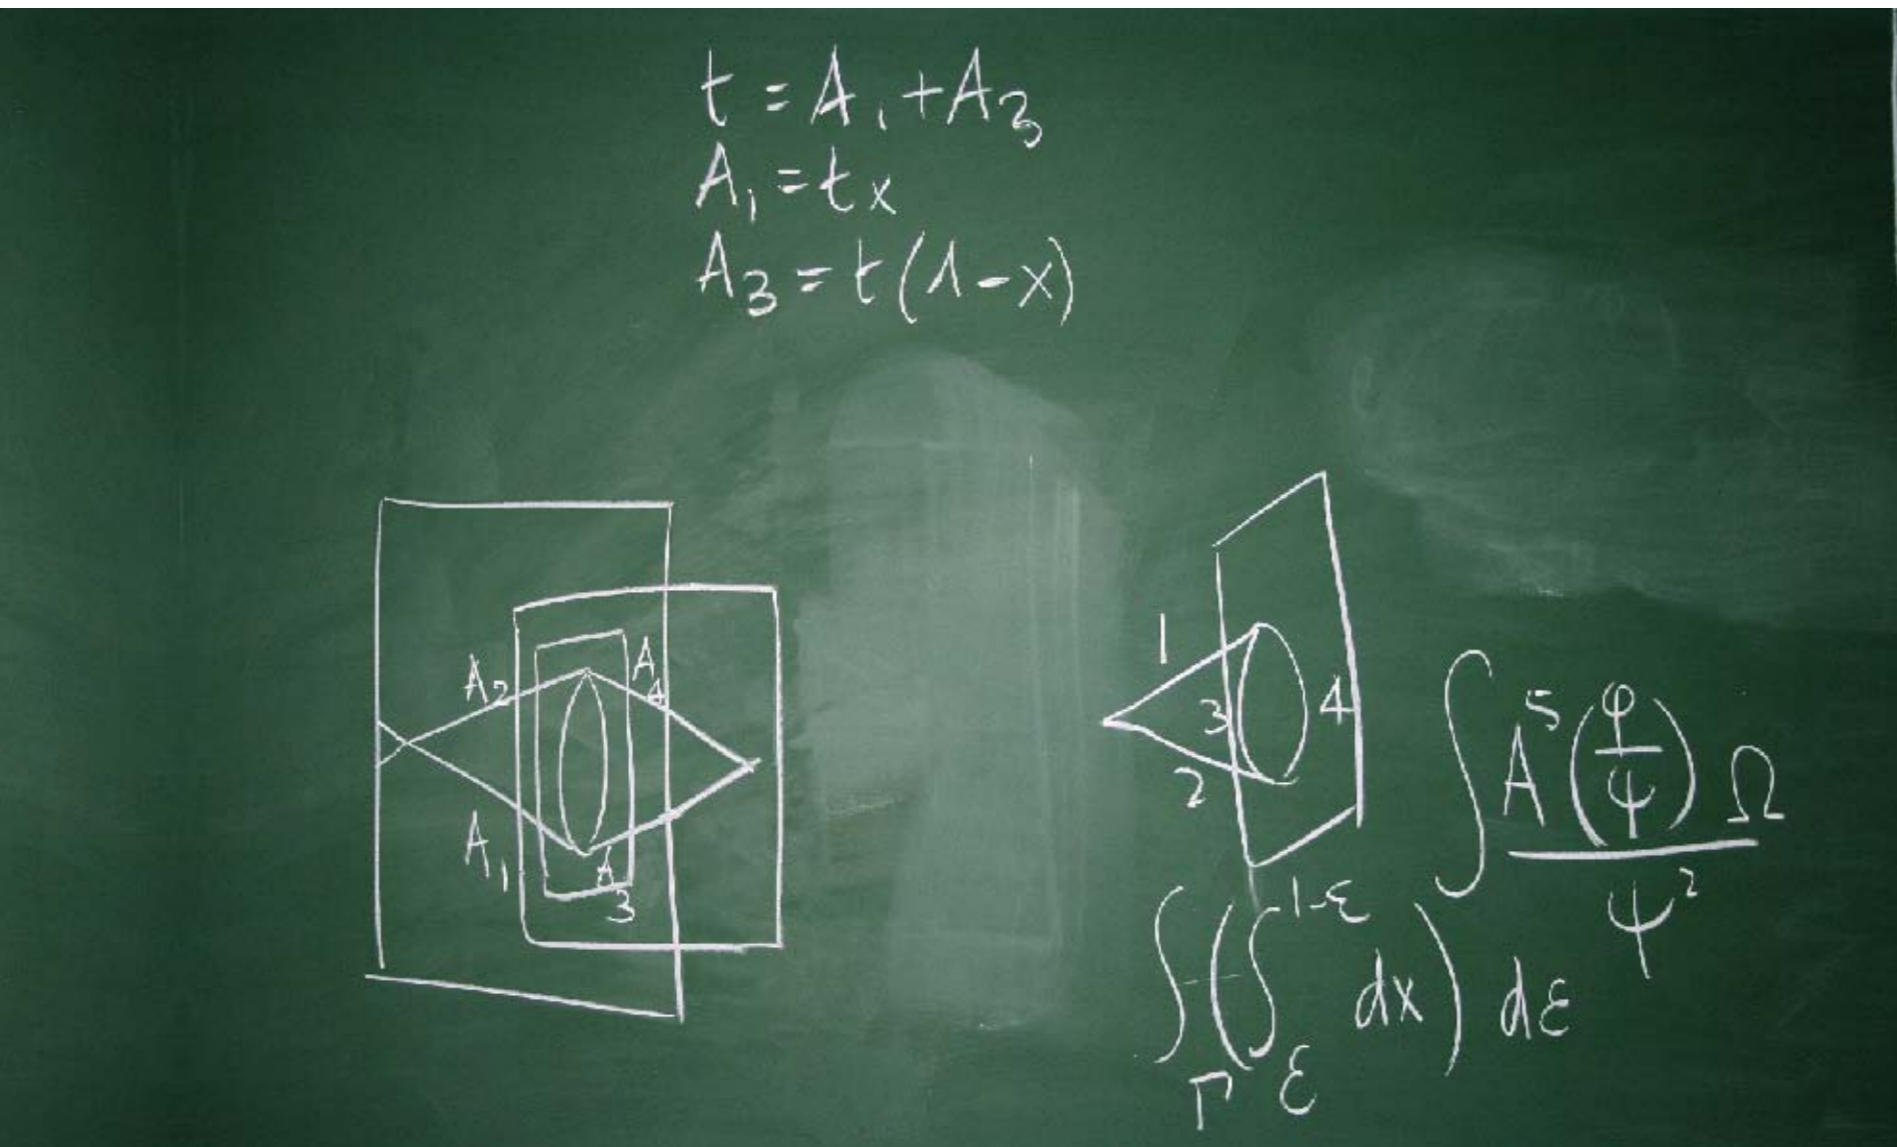 t = A₁ + A₃
A₁ = tx
A₃ = t(1-x)
A₂ A₄
A₁ A₃
1 3 4
2
∫ A⁵(φ/ψ) Ω / ψ²
∫_Γ (∫_ε^{1-ε} dx) dε